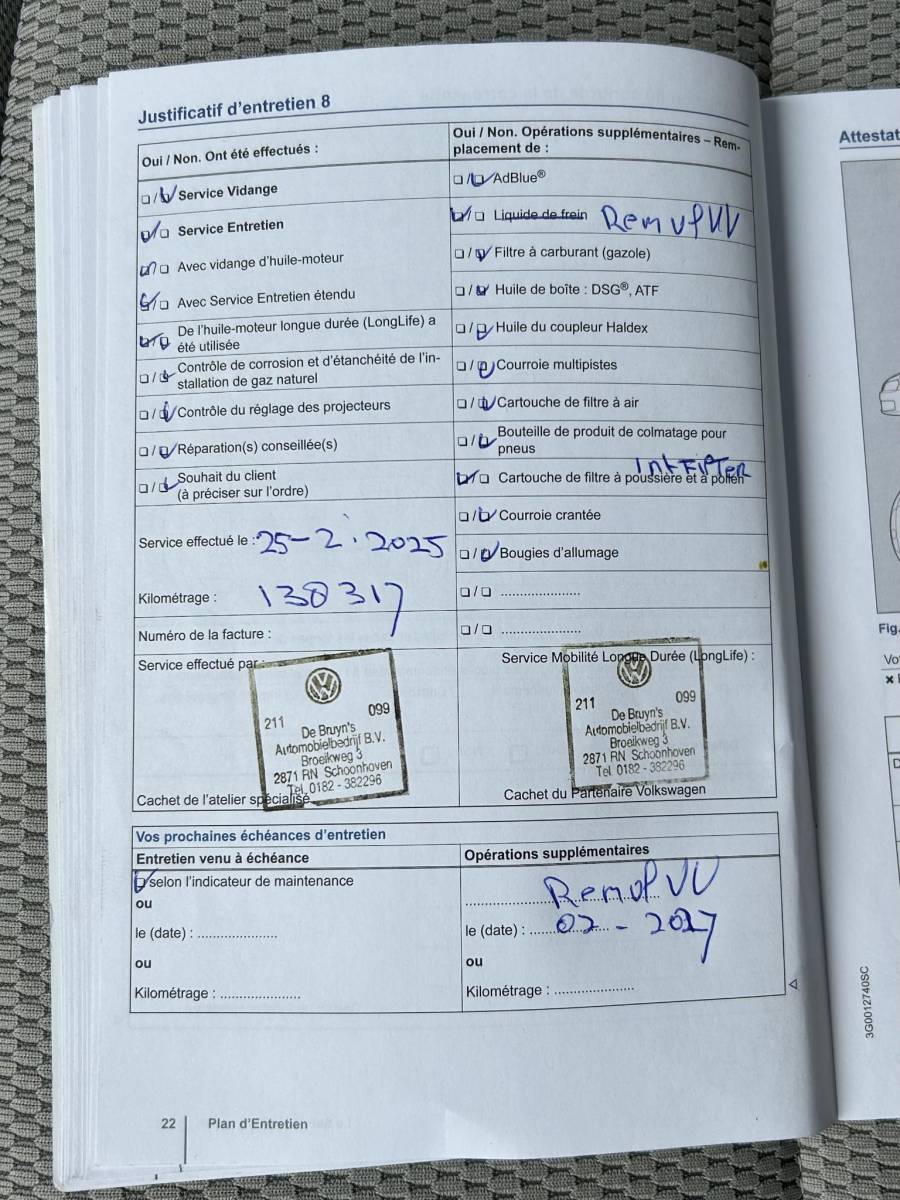 Justificatif d'entretien 8
Oui / Non. Ont été effectués :
❏ / ❏ Service Vidange
❏ / ❏ Service Entretien
❏ / ❏ Avec vidange d'huile-moteur
❏ / ❏ Avec Service Entretien étendu
❏ / ❏ De l'huile-moteur longue durée (LongLife) a
été utilisée
❏ / ❏ Contrôle de corrosion et d'étanchéité de l'in-
stallation de gaz naturel
❏ / ❏ Contrôle du réglage des projecteurs
❏ / ❏ Réparation(s) conseillée(s)
❏ / ❏ Souhait du client
(à préciser sur l'ordre)
Service effectué le : 25-2.2025
Kilométrage : 138317
Numéro de la facture :
Service effectué par :
211 099
De Bruyn's
Automobielbedrijf B.V.
Broeikweg 3
2871 RN Schoonhoven
Tel. 0182 - 382296
Cachet de l'atelier spécialisé
Oui / Non. Opérations supplémentaires – Rem-
placement de :
❏ / ❏ AdBlue®
❏ / ❏ Liquide de frein Remvl VV
❏ / ❏ Filtre à carburant (gazole)
❏ / ❏ Huile de boîte : DSG®, ATF
❏ / ❏ Huile du coupleur Haldex
❏ / ❏ Courroie multipistes
❏ / ❏ Cartouche de filtre à air
❏ / ❏ Bouteille de produit de colmatage pour
pneus
IntFilter
❏ / ❏ Cartouche de filtre à poussière et à pollen
❏ / ❏ Courroie crantée
❏ / ❏ Bougies d'allumage
❏ / ❏ .....................
❏ / ❏ .....................
Service Mobilité Longue Durée (LongLife) :
211 099
De Bruyn's
Automobielbedrijf B.V.
Broeikweg 3
2871 RN Schoonhoven
Tel. 0182 - 382296
Cachet du Partenaire Volkswagen
Vos prochaines échéances d'entretien
Entretien venu à échéance
❏ selon l'indicateur de maintenance
ou
le (date) : .....................
ou
Kilométrage : .....................
Opérations supplémentaires
Remvl VV
le (date) : 02 - 2027
ou
Kilométrage : .....................
22 Plan d'Entretien
Attestat
Fig.
Vo
3G0012740SC